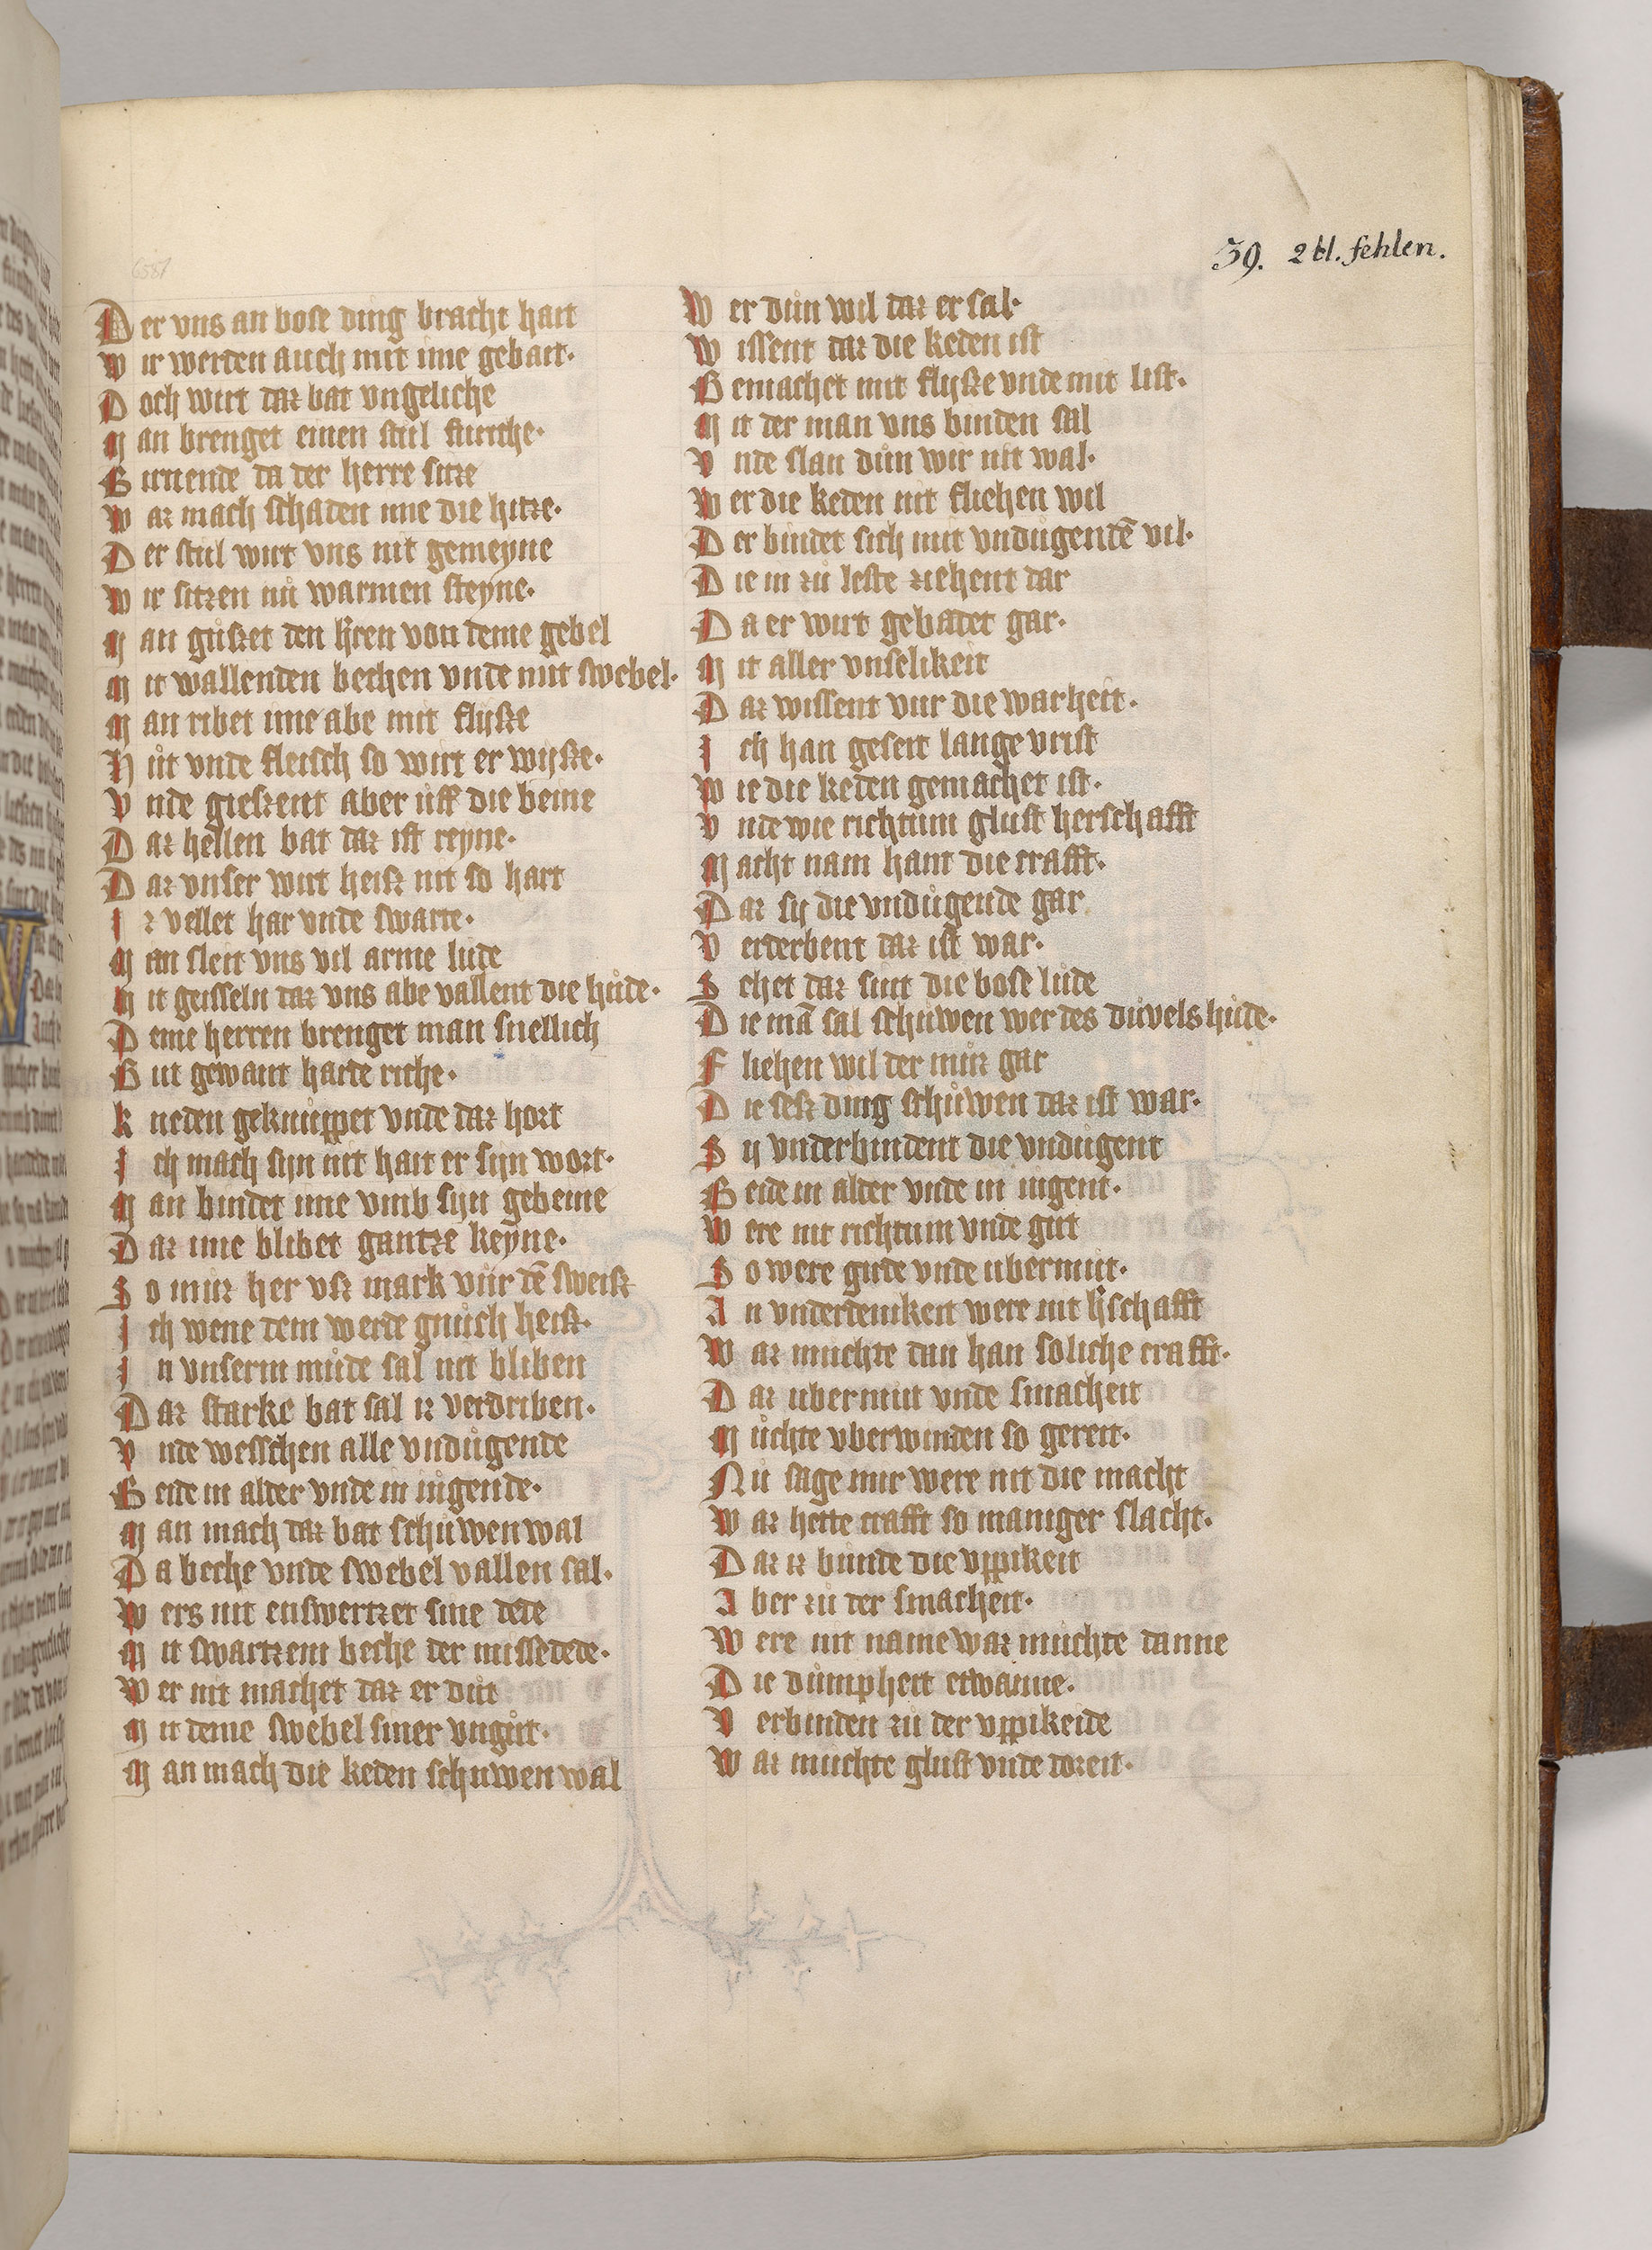 39. 2 bl. fehlen.
6587
Der vns an bose ding bracht hait
Wir werden auch mit ime gebait.
Doch wirt daz bat vngeliche
Man brenget einen stul
Burnende da der herre sitze
Waz mach schaden ime die hitze.
Der stul wirt vns nit gemeyne
Wir sitzen uff warmen steyne.
Man gußet den hren von deme gebel
Mit wallenden bechen vnde mit swebel.
Man ribet ime abe mit flyße
Hut vnde fleisch so wirt er wyße.
Vnde gießent aber uff die beine
Daz hellen bat daz ist reyne.
Daz vnser wirt heiß nit so hart
Iz vellet har vnde swarte.
Man sleit vns vil arme lude
Mit geisseln daz vns abe vallent die hude.
Deme herren brenget man snellich
Gut gewant harte riche.
Kneden geknuppet vnde daz hort
Ich mach syn nit hait er syn wort.
Man bindet ime vmb syn gebeine
Daz ime blibet gantze keyne.
So muz her vß mark vur dē sweiß
Ich wene dem werde gnuch heiß.
In vnserm mude sal nit bliben
Daz starke bat sal iz verdriben.
Vnde wesschen alle vndugende
Beide in alder vnde in iugende.
Man mach daz bat schuwen wal
Da beche vnde swebel vallen sal.
Wers nit enswertzet sine dede
Mit swartzem beche der missedede.
Wer nit machet daz er dut
Mit deme swebel siner vngut.
Man mach die keden schuwen wal
Wer dun wil daz er sal.
Wissent daz die keden ist
Gemachet mit flyße vnde mit list.
Mit der man vns binden sal
Vnde slan dun wir nit wal.
Wer die keden nit fliehen wil
Der bindet sich mit vndugendē vil.
Die in zu leste ziehent dar
Da er wirt gebadet gar.
Mit aller vnselikeit
Daz wissent vur die warheit.
Ich han geseit lange vrist
Wie die keden gemachet ist.
Vnde wie richtum glust herschafft
Macht nam hant die crafft.
Daz sy die vndugende gar
Verderbent daz ist war.
Sehet daz sint die bose lude
Die mā sal schuwen wer des duvels hude.
Fliehen wil der muz gar
Die seß ding schuwen daz ist war.
Sy vnderbindent die vndugent
Beide in alder vnde in iugent.
Were nit richtum vnde gut
So were gude vnde ubermut.
An vnderdenikeit were nit hschafft
Waz muchte dan han soliche crafft.
Daz ubermut vnde smacheit
Muchte vberwinden so gereit.
Nu sage mir were nit die macht
Waz hette crafft so maniger slacht.
Daz iz bunde die vppikeit
Aber zu der smacheit.
Were nit name waz muchte danne
Die dumpheit etwanne.
Verbinden zu der vppikeide
Waz muchte glust vnde doreit.